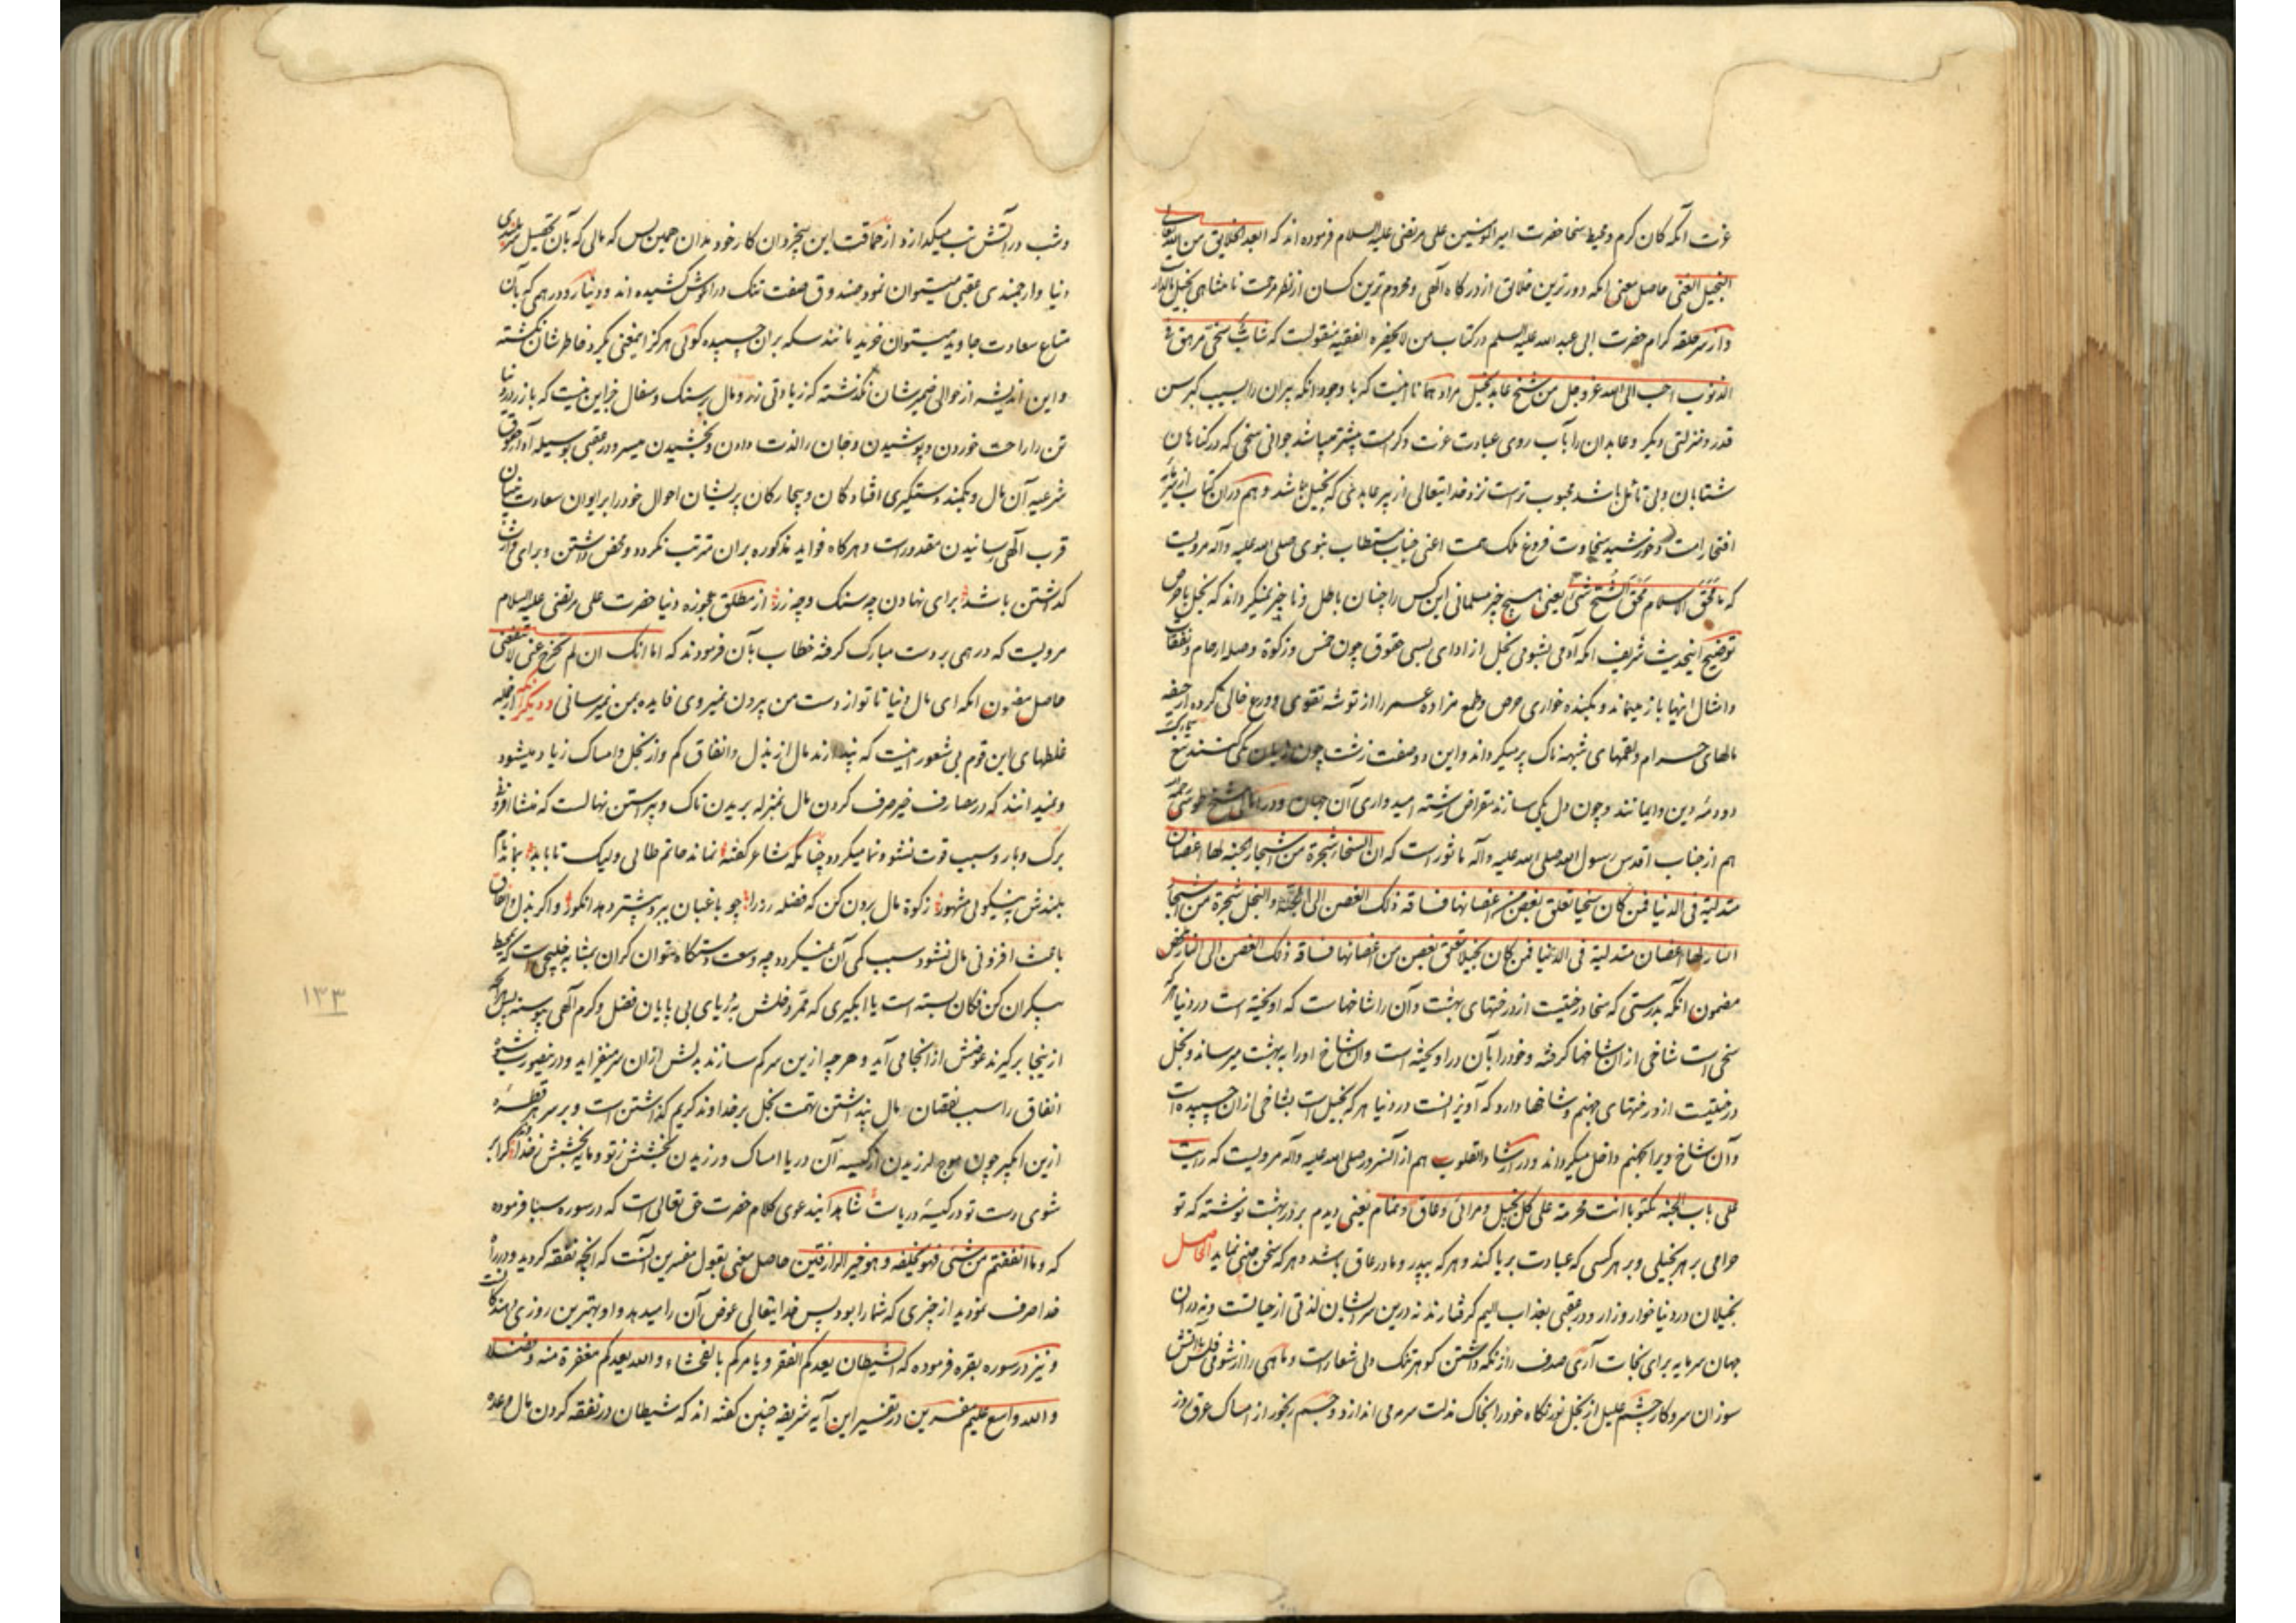 عزت آنکه کان کرم و محیط سخا حضرت امیرالمومنین علی مرتضی علیه السلام فرموده اند که ابعد الخلایق من الله تعالی
البخیل الغنی حاصل معنی آنکه دورترین خلایق از درگاه الهی و محروم ترین کسان از نظر مرحمت نامتناهی بخیل مالدار
و از سر حلقه کرام حضرت ابی عبد الله علیه السلم در کتاب من لا یحضره الفقیه منقولست که شاب سخی مرهق فی
الذنوب احب الی الله عزوجل من شیخ عابد بخیل مراد همانا اینست که با وجود آنکه پیران را بسبب کبر سن
قدر و منزلتی دیگر و عابدان را بآب روی عبادت عزت و کرامت بیشتر میباشد جوانی سخی که در گناهان
شتابان و بی تامل باشد محبوب تر است نزد خدایتعالی از پیر عابدی که بخیل باشد و هم در آن کتاب از
افتخار امت و خورشید سخاوت فروغ فلک همت اعنی جناب مستطاب نبوی صلی الله علیه و آله مرویست
که ما محق الاسلام محق الشح شیء یعنی هیچ چیز مسلمانی این کس را چنان باطل و ناچیز نمیگرداند که بخل با حرص
توضیح اینحدیث شریف آنکه آدمی بشومی بخل از ادای بسی حقوق چون خمس و زکوة و صله ارحام و نفقات
و امثال اینها باز میماند و بکشنده خواری حرص و طمع مزاده عمر را از توشه تقوی و ورع خالی کرده از جیفه
مالهای حرام و لقمهای شبهه ناک پر میگرداند و این دو صفت زشت چون زبان یکی کنند تیغ
دودمه دین و ایمانند و چون دل یکی سازند مقراض رشته امیدواری آن جهان و در امالی شیخ طوسی
هم از جناب اقدس رسول الله صلی الله علیه و آله ماثور است که ان السخاء شجرة من اشجار الجنه لها اغصان
متدلیة فی الدنیا فمن کان سخیا تعلق بغصن من اغصانها فساقه ذلک الغصن الی الجنة و البخل شجرة من اشجار
النار لها اغصان متدلیة فی الدنیا فمن کان بخیلا تعلق بغصن من اغصانها فساقه ذلک الغصن الی النار
مضمون آنکه بدرستی که سخا درختیست از درختهای بهشت و آن را شاخهاست که آویخته است در دنیا هر که
سخی است شاخی از آن شاخها گرفته و خود را بآن در آویخته است و آن شاخ او را به بهشت میرساند و بخل
درختیست از درختهای جهنم و شاخها دارد که آویزانست در دنیا هر که بخیل است بشاخی از آن چسپیده است
و آن شاخ ویرا بجهنم داخل میگرداند و در ارشاد القلوب هم از آنسرور صلی الله علیه و آله مرویست که رایت
علی باب الجنه مکتوبا انت محرمة علی کل بخیل و مرائی و عاق و نمام یعنی دیدم بر در بهشت نوشته که تو
حرامی بر هر بخیلی و بر هر کسی که عبادت بریا کند و هر که بپدر و مادر عاق باشد و هر که سخن چینی نماید الحاصل
بخیلان در دنیا خوار و زار و در عقبی بعذاب الیم گرفتارند نه درین سرایشان لذتی از حیاتست و نه در آن
جهان سرمایه برای نجات آری صدف را از نگه داشتن گوهر تنگ دلی شعار است و ماهی را از شومی فلس با آتش
سوزان سروکار چشم علیل از بخل نور نگاه خود را بخاک مذلت سرمی اندازد و جسم رنجور از امساک عرق روز
و شب در آتش تب میگدازد از حماقت این بیخردان کار خود بدان همین بس که مالی که بآن تحصیل سربلندی
دنیا و ارجمندی عقبی میتوان نمود صندوق صفت تنگ در آغوش کشیده اند و دینار و درهمی که بآن
متاع سعادت جاوید میتوان خرید مانند سکه بران چسپیده گویی هرگز اینمعنی گرد خاطرشان نگشته
و این اندیشه از حوالی ضمیرشان نگذشته که زیادتی زر و مال بر سنگ و سفال جز این نیست که باز زر در دنیا
تن را راحت خوردن و پوشیدن و جان را لذت دادن و بخشیدن میسر و در عقبی بوسیله ادای حقوق
شرعیه آن مال و بکمند دستگیری افتادگان و بیچارگان پریشان احوال خود را بر ایوان سعادت بنیان
قرب الهی رسانیدن مقدور است و هرگاه فواید مذکوره بران مترتب نگردد و محض داشتن و برای وارث
گذاشتن باشد برای نهادن چه سنگ و چه زر از مطلق عجوزه دنیا حضرت علی مرتضی علیه السلام
مرویست که درهمی بر دست مبارک گرفته خطاب بآن فرمودند که اما انک ان لم تخرج عنی لا تنفعنی
حاصل مضمون آنکه ای مال دنیا تا تو از دست من بیرون نمیروی فایده بمن نمیرسانی و دیگر آنکه از جمله
غلطهای این قوم بی شعور اینست که پندارند مال از بذل و انفاق کم و از بخل و امساک زیاد میشود
و نمیدانند که در مصارف خیر صرف کردن مال بمنزله بریدن تاک و پیراستن نهالست که منشا افزونی
برگ و بار و سبب قوت نشو و نما میگردد چنانکه شاعر گفته نماند حاتم طائی ولیک تا بابد بماند نام
بلندش به نیکوئی مشهور زکوة مال برون کن که فضله رز را چو باغبان ببرد بیشتر دهد انگور و اگر بذل و انفاق
باعث افزونی مال نشود سبب کمی آن نمیگردد چه وسعت دستگاه بتوان گران بمثابه خلیجی است که بمحیط
بیکران کن فکان بسته است یا آبگیری که ممر دخلش بدریای بی پایان فضل و کرم الهی پیوسته پس هر چه
ازینجا برگیرند عوضش از آنجا می آید و هر چه ازین سر کم سازند بدلش از آن سر میفزاید و درینصورت
انفاق را سبب نقصان مال پنداشتن تهمت بخل بر خداوند کریم گذاشتن است و بر سر هر قطرهٔ
ازین آبگیر چون موج لرزیدن از کیسه آن دریا امساک ورزیدن بخشش ز تو و مایه بخشش ز خدا
شوی دست تو در کیسهٔ دریاست شاهد اینمدعوی کلام حضرت حق تعالی است که در سوره سبا فرموده
که و ما انفقتم من شیء فهو یخلفه و هو خیر الرازقین حاصل معنی بقول مفسرین آنست که آنچه نفقه کردید و در راه
خدا صرف نمودید از چیزی که شما را بود پس خدایتعالی عوض آن را میدهد و او بهترین روزی دهندگانست
و نیز در سوره بقره فرموده که الشیطان یعدکم الفقر و یامرکم بالفحشاء و الله یعدکم مغفرة منه و فضلا
و الله واسع علیم مفسرین در تفسیر این آیه شریفه چنین گفته اند که شیطان در نفقه کردن مال وعده
۱۳۳